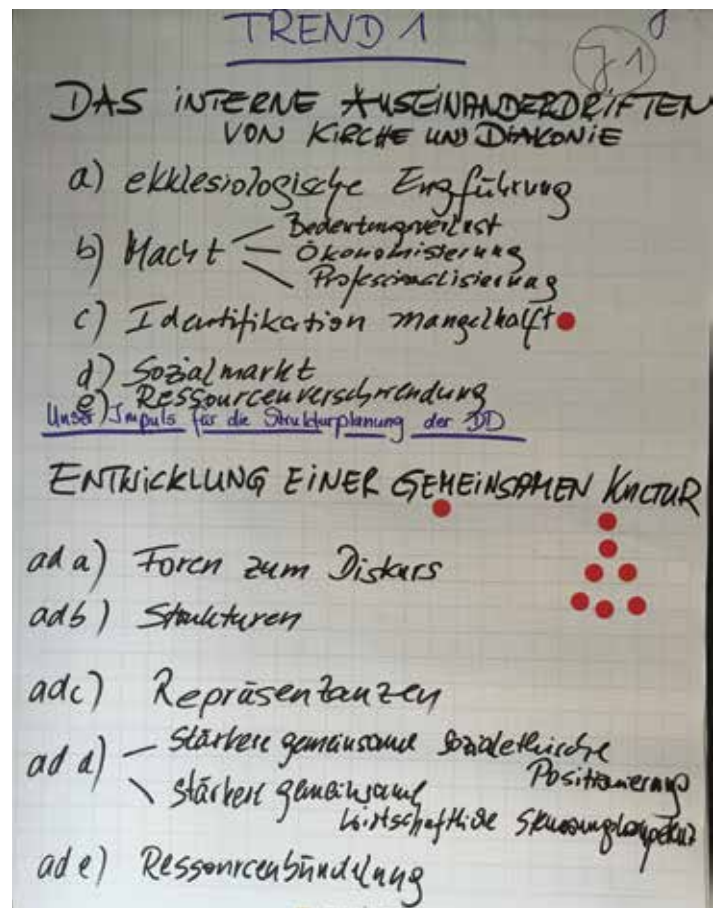 TREND 1
J1
DAS INTERNE AUSEINANDERDRIFTEN
VON KIRCHE UND DIAKONIE
a) ekklesiologische Engführung
b) Macht
Bedeutungsverlust
Ökonomisierung
Professionalisierung
c) Identifikation mangelhaft
d) Sozialmarkt
e) Ressourcenverschwendung
Unser Impuls für die Strukturplanung der DD
ENTWICKLUNG EINER GEMEINSAMEN KULTUR
ad a) Foren zum Diskurs
ad b) Strukturen
ad c) Repräsentanzen
ad d) – Stärkere gemeinsame sozialethische
Positionierung
\ stärkere gemeinsame
wirtschaftliche Steuerungskompetenz
ad e) Ressourcenbündelung